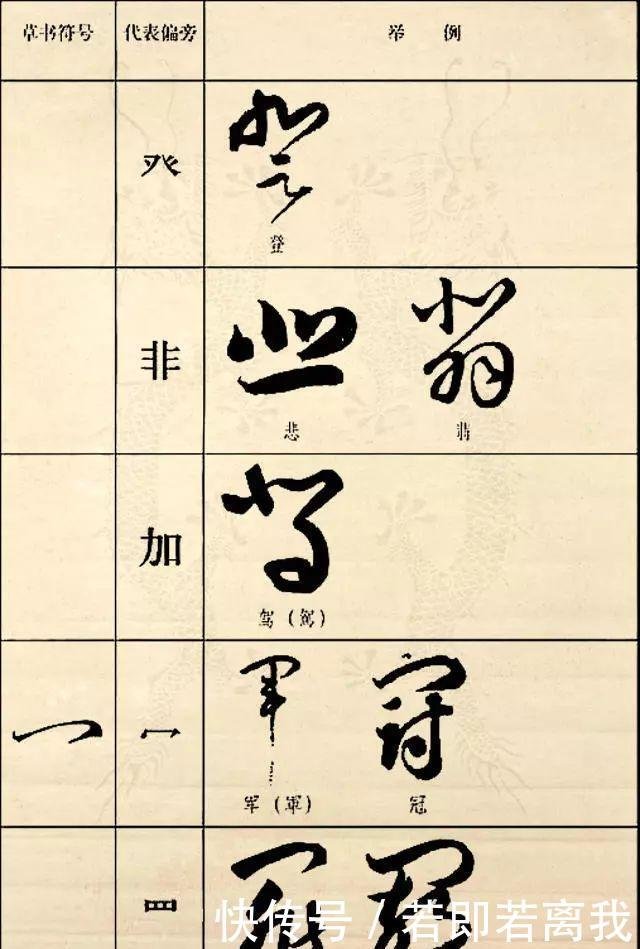 草书符号 代表偏旁 举例
癶
登
非
悲 翡
加
驾(駕)
冖
军(軍) 冠
罒
快传号 / 若即若离我